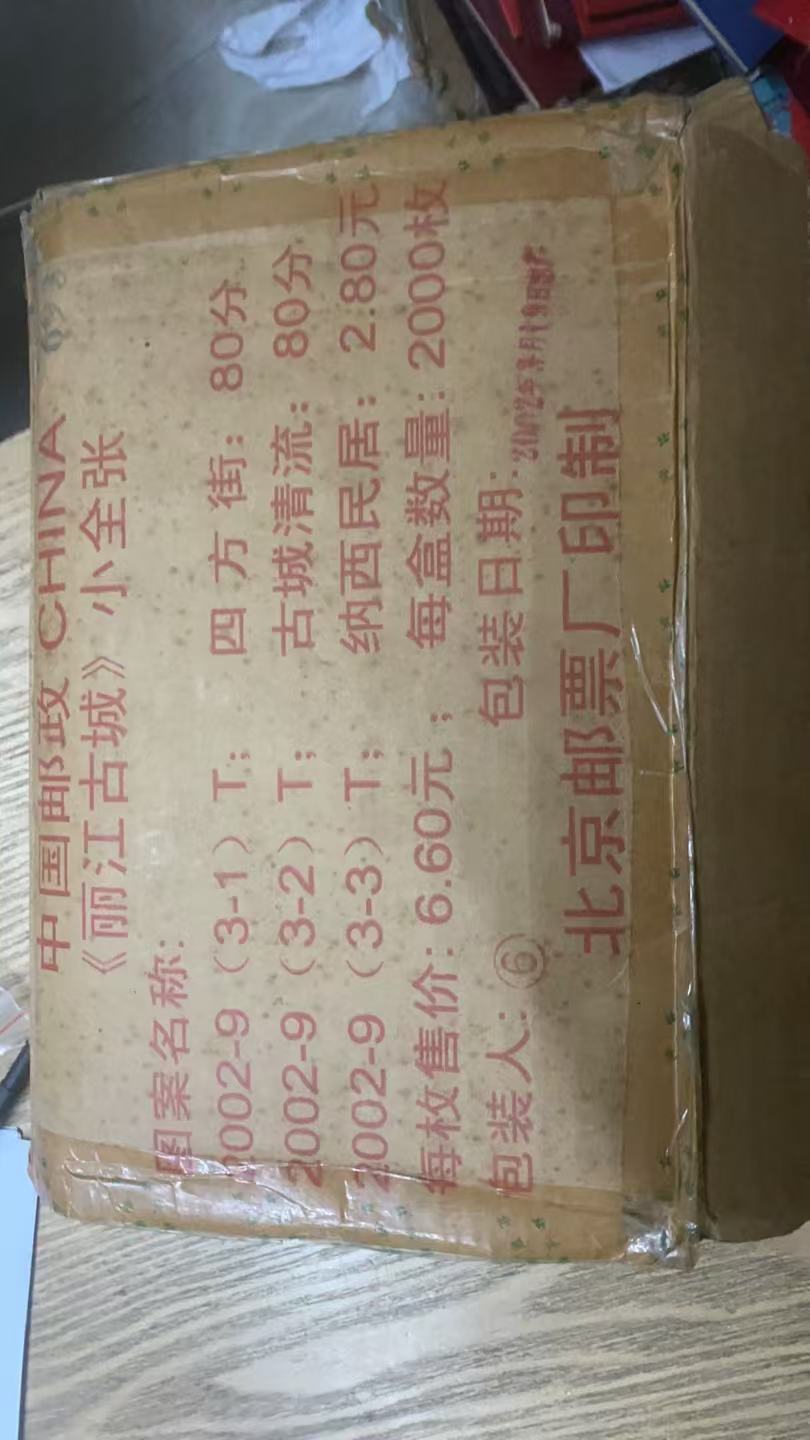 中国邮政 CHINA
《丽江古城》小全张
图案名称：
2002-9（3-1）T； 四方街：80分
2002-9（3-2）T； 古城清流：80分
2002-9（3-3）T； 纳西民居：2.80元
每枚售价：6.60元； 每盒数量：2000枚
包装人：⑥ 包装日期：2002年
北京邮票厂印制